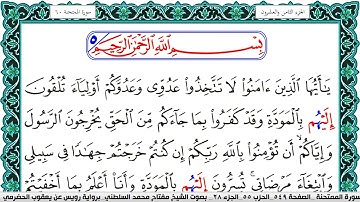 سورة الممتحنة ٦٠
الجزء الثامن والعشرون
بِسْمِ اللَّهِ الرَّحْمَٰنِ الرَّحِيمِ
٥
يَٰٓأَيُّهَا الَّذِينَ ءَامَنُوا۟ لَا تَتَّخِذُوا۟ عَدُوِّى وَعَدُوَّكُمْ أَوْلِيَآءَ تُلْقُونَ
إِلَيْهُم بِالْمَوَدَّةِ وَقَدْ كَفَرُوا۟ بِمَا جَآءَكُم مِّنَ الْحَقِّ يُخْرِجُونَ الرَّسُولَ
وَإِيَّاكُمْ أَن تُؤْمِنُوا۟ بِاللَّهِ رَبِّكُمْ إِن كُنتُمْ خَرَجْتُمْ جِهَٰدًا فِى سَبِيلِى
وَابْتِغَآءَ مَرْضَاتِى تُسِرُّونَ إِلَيْهُم بِالْمَوَدَّةِ وَأَنَا۠ أَعْلَمُ بِمَآ أَخْفَيْتُمْ
سورة الممتحنة الصفحة ٥٤٩ الحزب ٥٥ الجزء ٢٨ بصوت الشيخ مفتاح محمد السلطني برواية رويس عن يعقوب الحضرمي